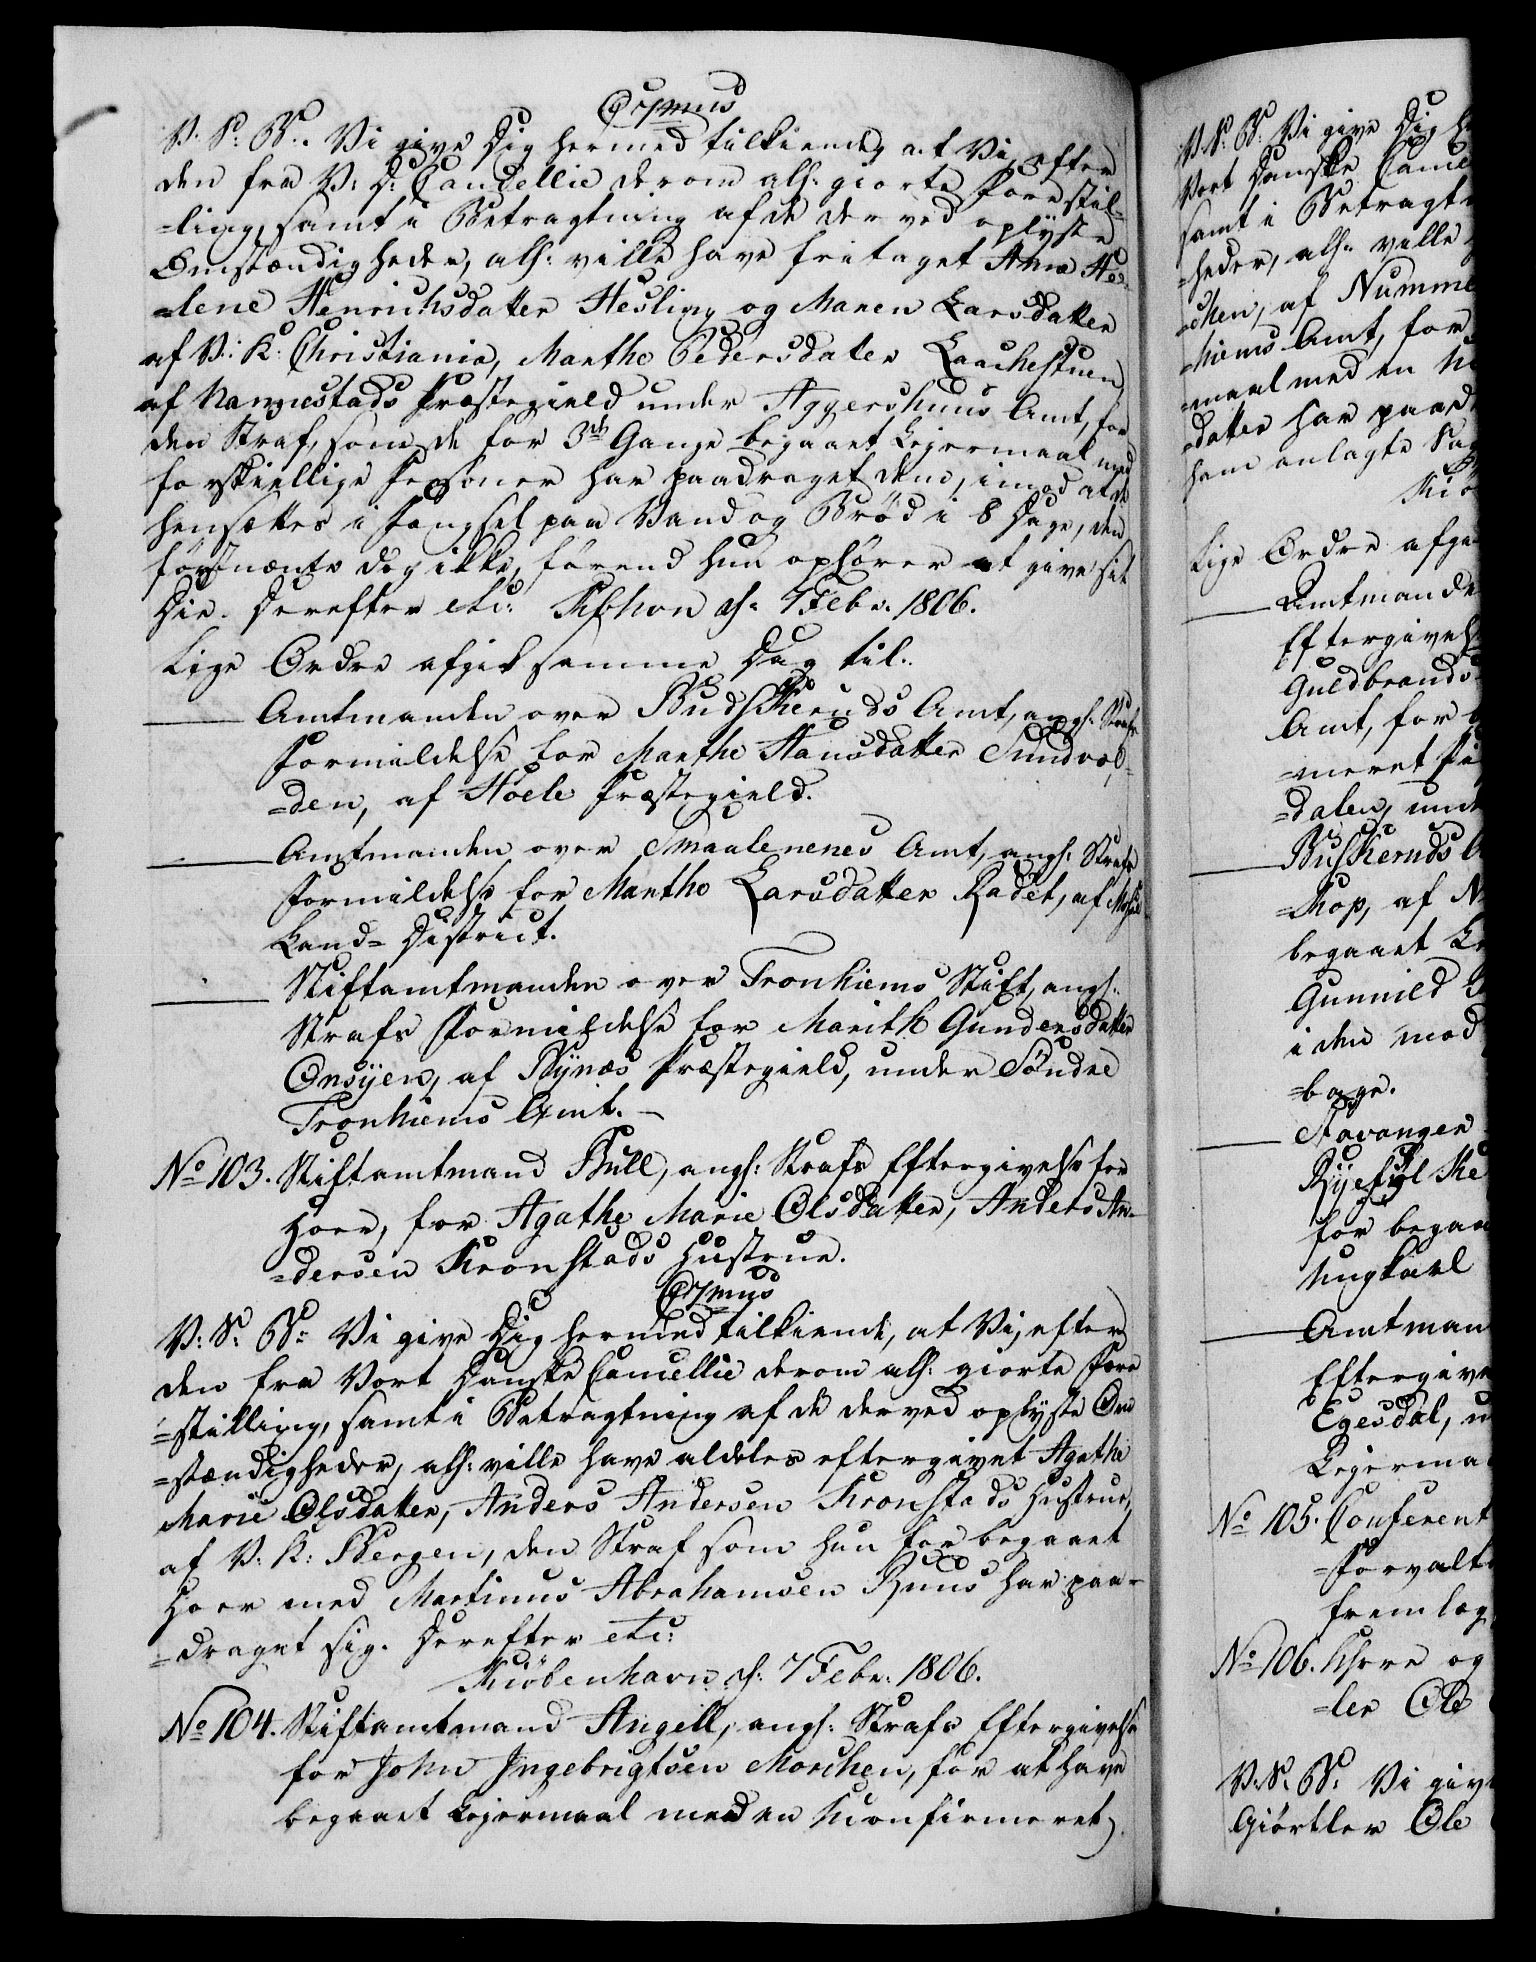 V. S. B. Vi give Dig hermed tilkiende, at Vi, efter
den fra V: D: Cancellie derom alh: giorte Forestil-
=ling, samt i Betragtning af de derved oplyste
Omstændigheder, alh: ville have fritaget Anne He-
=lene Henrichsdatter Hesling og Maren Larsdatter
af V: K: Christiania, Marthe Pedersdatter Laachestuen
af Nannestads Præstegield under Aggershuus Amt, for
den Straf, som de for 3die Gange begaaet Lejermaal med
forskiellige Personer har paadraget dem, imod at de
hensættes i Fængsel paa Vand og Brød i 8 Dage, den
førstnævnte dog ikke, førend hun ophører at give sit
Die. Derefter etc: Kbhvn d: 7 Febr: 1806.
Lige Ordre afgik samme Dag til:
Amtmanden over Budskeruds Amt, angh: Strafs
Formildelse for Marthe Hansdatter Sundvol-
=den, af Hoele Præstegield.
Amtmanden over Smaalenenes Amt, angh: Strafs
Formildelse for Marthe Larsdatter Radet, af
Land= District.
Stiftamtmanden over Tronhiems Stift, angh:
Strafs Formildelse for Marith Gundersdatter
Onsøyen, af Bynæs Præstegield, under Søndre
Tronhiems Amt. —
No 103. Stiftamtmand Bull, angh: Strafs Eftergivelse for
Hoer, for Agathe Marie Olsdatter, Anders An-
=dersen Kronstads Hustrue.
V: S: B: Vi give Dig hermed tilkiende, at Vi, efter
den fra Vort Danske Cancellie derom alh: giorte Fore
=stilling, samt i Betragtning af de derved oplyste Om
=stændigheder, alh: ville have aldeles eftergivet Agathe
Marie Olsdatter, Anders Andersen Kronstads Hustrue,
af V: K: Bergen, den Straf som hun for begaaet
Hoer med Martinus Abrahamsen Ruus har paa-
=draget sig. Derefter etc:
Kiøbenhavn d: 7 Febr: 1806.
No 104. Stiftamtmand Angell, angh: Strafs Eftergivelse
for John Ingebrigtsen Morchen, for at have
begaaet Lejermaal med en Uconfirmeret
V. S. B. Vi give Dig
Vort Danske Cancel
samt i Betragt
=heder, alh: ville
=chen, af Numme
=hiems Amt, for
=maal med en
datter har paad
ham anlagte Sag
Kiø
Lige Ordre afgi
Amtmande
Eftergivels
Guldbrands
Amt, for
=meret Pi
dalen, und
Buskeruds A
=kop, af N
begaaet Le
Gunnild
i den mod
=bage.
Stavanger
Ryefyl
for begaa
Ungkarl
Amtman
Eftergive
Egesdal, u
Lejerma
No 105. Conferent
=forvalt
fremlæg
No 106. Uhre og
=ler Ole
V: S: B: Vi give
Giørtler Ole